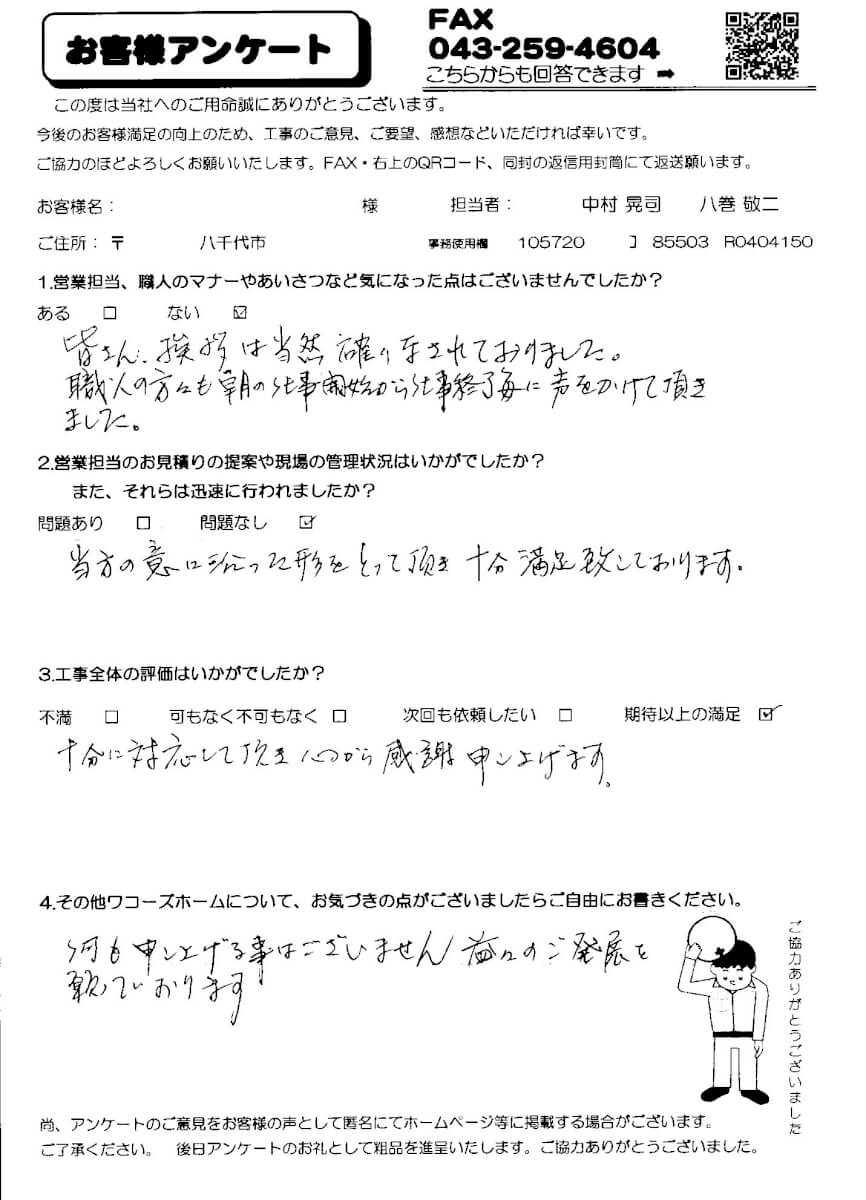 お客様アンケート
FAX
043-259-4604
こちらからも回答できます ➡
この度は当社へのご用命誠にありがとうございます。
今後のお客様満足の向上のため、工事のご意見、ご要望、感想などいただければ幸いです。
ご協力のほどよろしくお願いいたします。FAX・右上のQRコード、同封の返信用封筒にて返送願います。
お客様名： 様 担当者： 中村 晃司 八巻 敬二
ご住所：〒 八千代市 事務使用欄 105720 】 85503 R0404150
1.営業担当、職人のマナーやあいさつなど気になった点はございませんでしたか？
ある □ ない ☑
皆さん、挨拶は当然確りなされておりました。
職人の方々も朝の仕事開始から仕事終了毎に声をかけて頂き
ました。
2.営業担当のお見積りの提案や現場の管理状況はいかがでしたか？
また、それらは迅速に行われましたか？
問題あり □ 問題なし ☑
当方の意に沿った形をとって頂き十分満足致しております。
3.工事全体の評価はいかがでしたか？
不満 □ 可もなく不可もなく □ 次回も依頼したい □ 期待以上の満足 ☑
十分に対応して頂き心から感謝申し上げます。
4.その他ワコーズホームについて、お気づきの点がございましたらご自由にお書きください。
何も申し上げる事はございません益々のご発展を
っております
ご協力ありがとうございました
尚、アンケートのご意見をお客様の声として匿名にてホームページ等に掲載する場合がございます。
ご了承ください。 後日アンケートのお礼として粗品を進呈いたします。ご協力ありがとうございました。